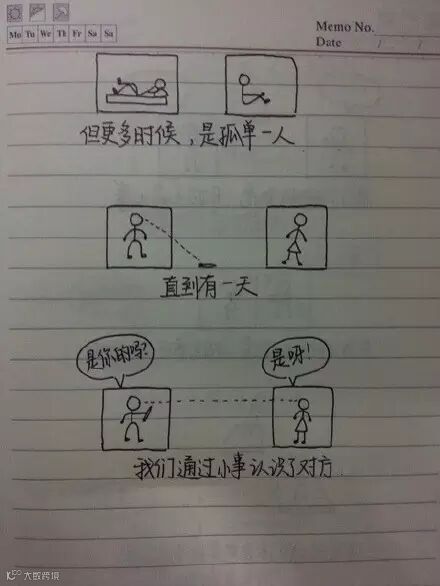 Memo No.
Mo Tu We Th Fr Sa Sa
Date / /
但更多时候，是孤单一人
直到有一天
是你的吗？
是呀！
我们通过小事认识了对方
大数跨境